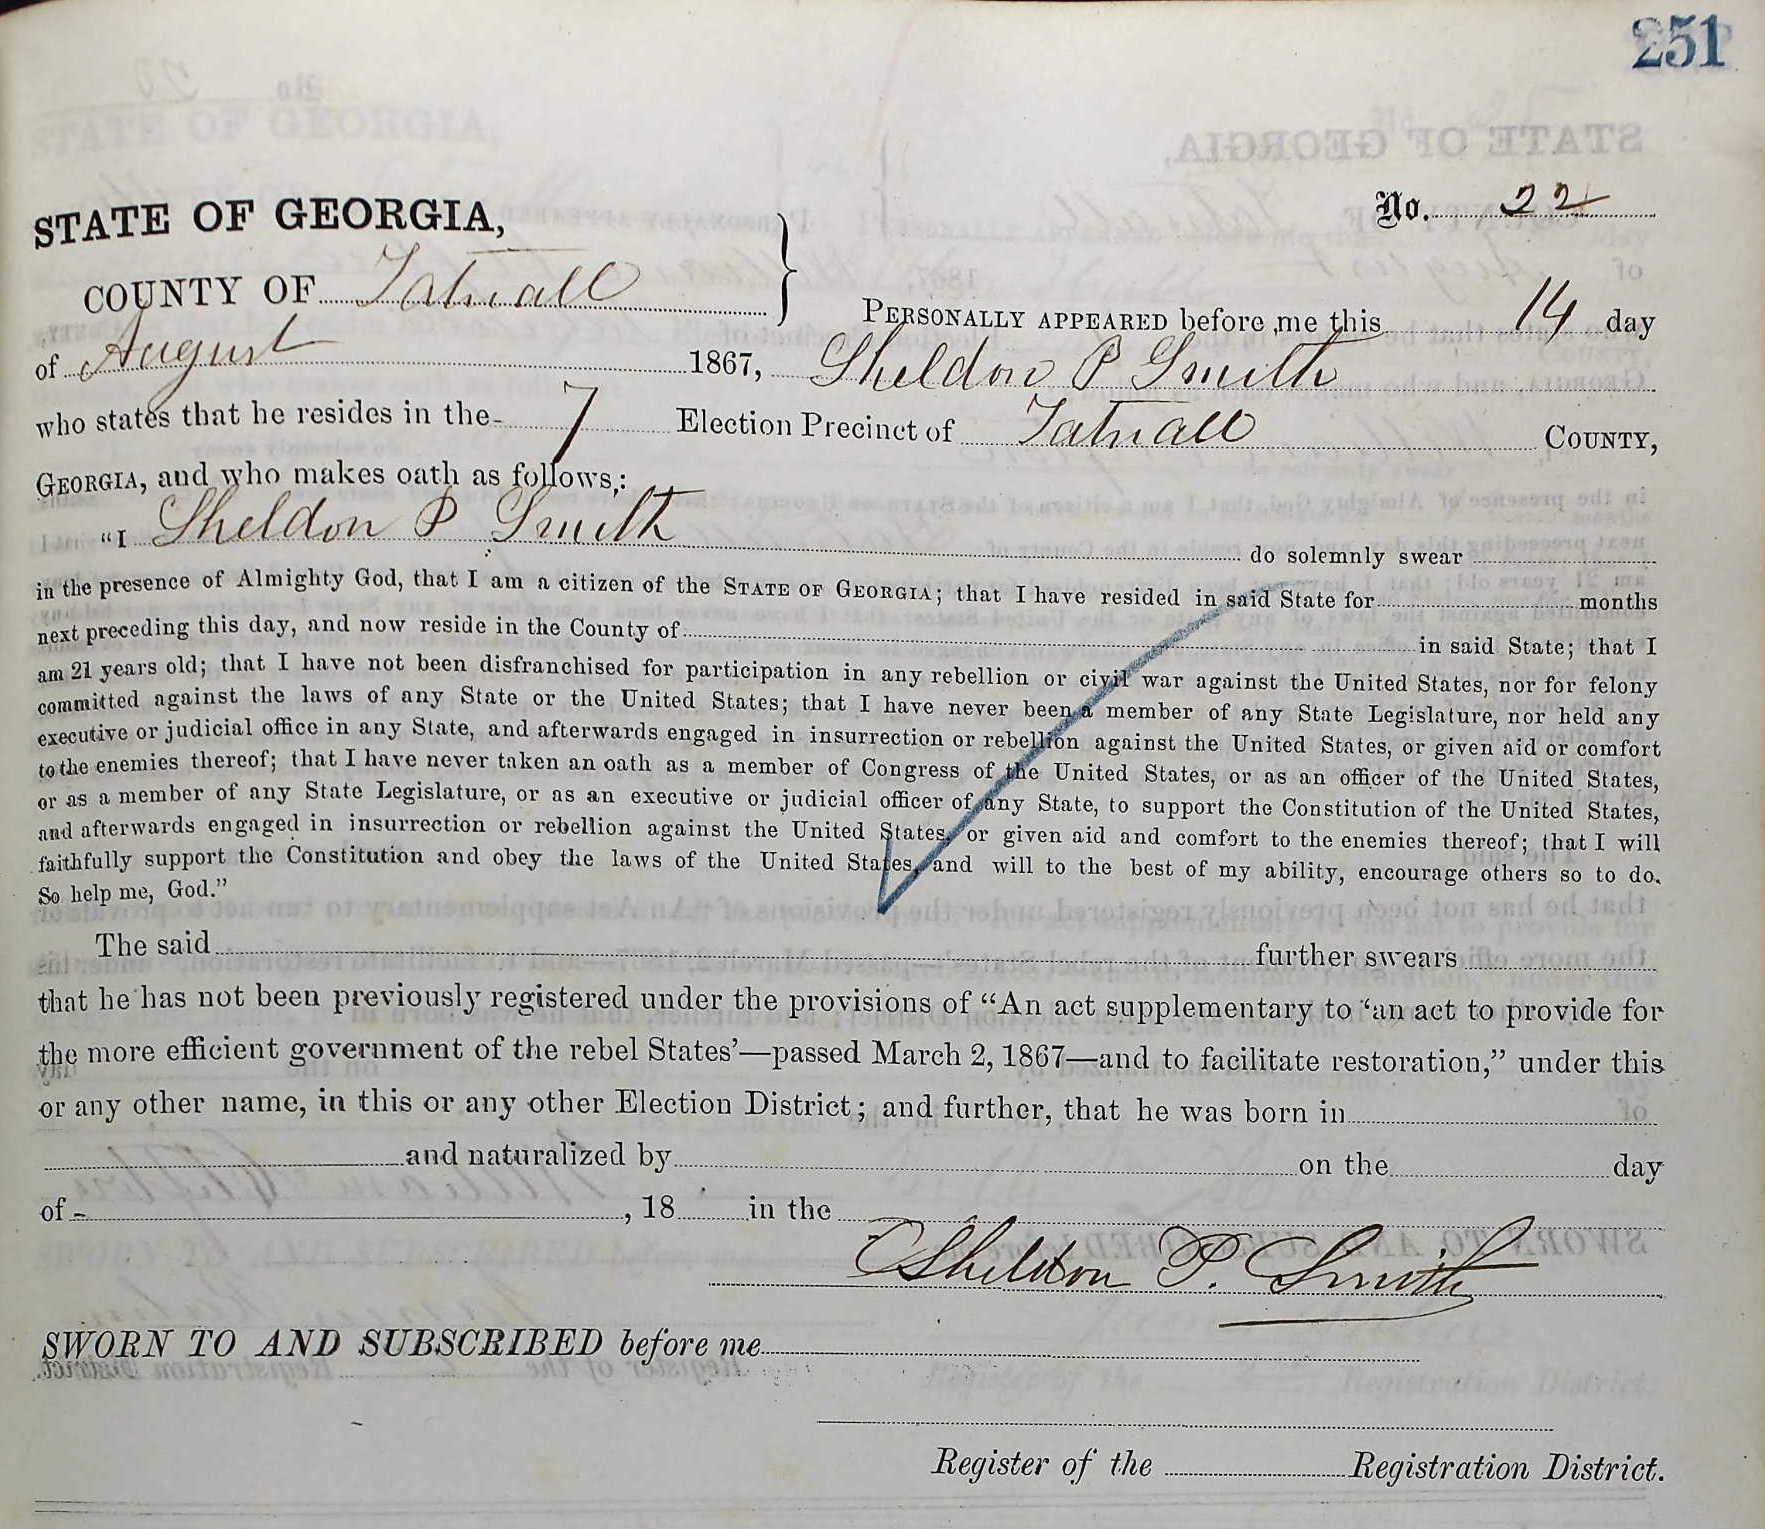 251
STATE OF GEORGIA,
No. 22
COUNTY OF Tatnall
PERSONALLY APPEARED before me this 14 day
of August 1867, Sheldon P Smith
who states that he resides in the 7 Election Precinct of Tatnall COUNTY,
GEORGIA, and who makes oath as follows:
"I Sheldon P Smith do solemnly swear
in the presence of Almighty God, that I am a citizen of the STATE OF GEORGIA; that I have resided in said State for months
next preceding this day, and now reside in the County of in said State; that I
am 21 years old; that I have not been disfranchised for participation in any rebellion or civil war against the United States, nor for felony
committed against the laws of any State or the United States; that I have never been a member of any State Legislature, nor held any
executive or judicial office in any State, and afterwards engaged in insurrection or rebellion against the United States, or given aid or comfort
to the enemies thereof; that I have never taken an oath as a member of Congress of the United States, or as an officer of the United States,
or as a member of any State Legislature, or as an executive or judicial officer of any State, to support the Constitution of the United States,
and afterwards engaged in insurrection or rebellion against the United States, or given aid and comfort to the enemies thereof; that I will
faithfully support the Constitution and obey the laws of the United States, and will to the best of my ability, encourage others so to do.
So help me, God."
The said further swears
that he has not been previously registered under the provisions of "An act supplementary to 'an act to provide for
the more efficient government of the rebel States'—passed March 2, 1867—and to facilitate restoration," under this
or any other name, in this or any other Election District; and further, that he was born in
and naturalized by on the day
of , 18 in the
Sheldon P. Smith
SWORN TO AND SUBSCRIBED before me
Register of the Registration District.